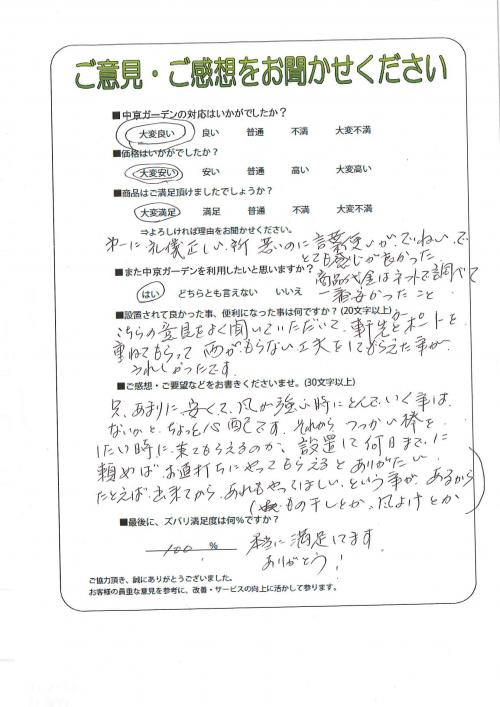 ご意見・ご感想をお聞かせください
■中京ガーデンの対応はいかがでしたか？
大変良い 良い 普通 不満 大変不満
■価格はいかがでしたか？
大変安い 安い 普通 高い 大変高い
■商品はご満足頂けましたでしょうか？
大変満足 満足 普通 不満 大変不満
⇒よろしければ理由をお聞かせください。
に礼儀正しい所 のに言葉使いがていねいで
とても感じが良かった
■また中京ガーデンを利用したいと思いますか？
商品が はネットで調べて
はい どちらとも言えない いいえ
一番安かったこと
■設置されて良かった事、便利になった事は何ですか？(20文字以上)
こちらの意見をよく聞いていただいて、軒先とポートを
重ねてもらって雨がもらない工夫をしてもらえた事が
うれしかったです。
■ご感想・ご要望などをお書きくださいませ。(30文字以上)
あまりに安くて、風が強い時にとんでいく事は
ないかと、ちょっと心配です。それからつっかい棒を
したい時に来てもらえるのか、設置して何日までに
頼めばお値打ちにやってもらえるとありがたい。
たとえば出来てから、あれもやってほしいという事があるから
もの干しとか、風よけとか)
■最後に、ズバリ満足度は何％ですか？
100 % 本当に満足してます
ありがとう！
ご協力頂き、誠にありがとうございました。
お客様の貴重な意見を参考に、改善・サービスの向上に活かして参ります。